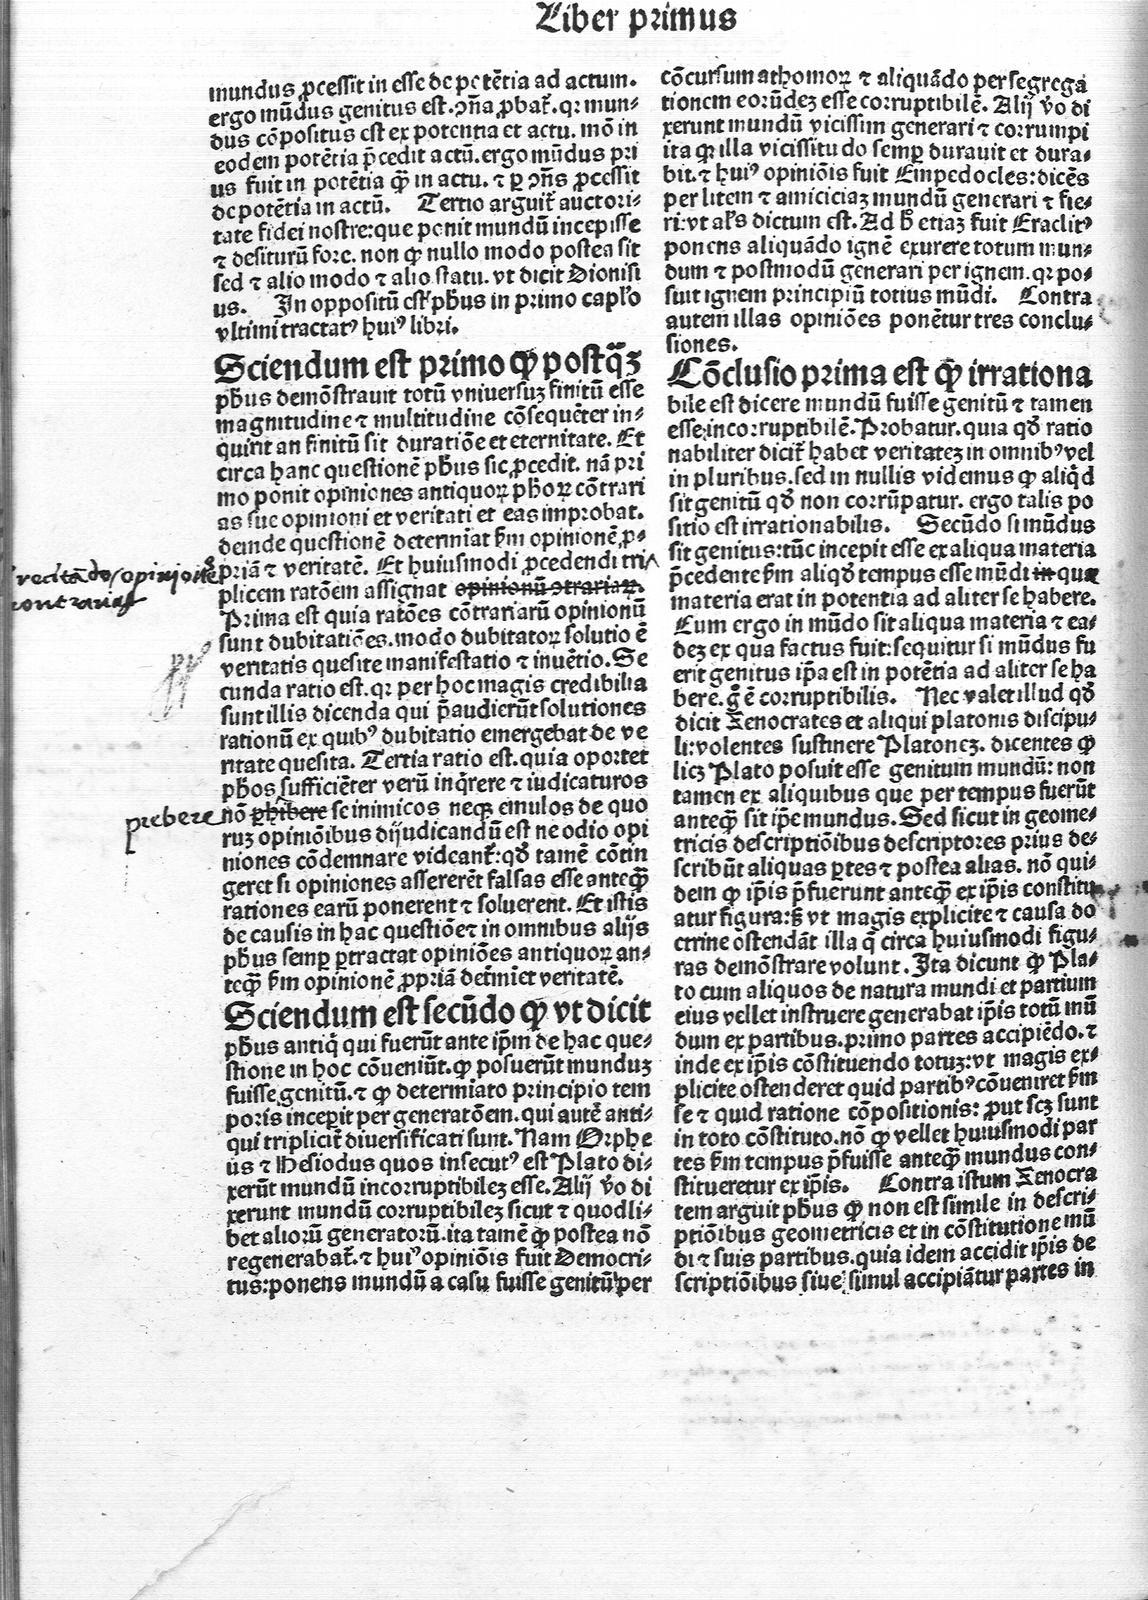 Liber primus
mundus ꝓcessit in esse de potẽtia ad actum.
ergo mũdus genitus est. ↄña ꝓbat̃. qꝛ mun-
dus cõpositus est ex potentia et actu. mõ in
eodem potẽtia p̃cedit actũ. ergo mũdus pri
us fuit in potẽtia qꝫ̃ in actu. ⁊ ꝑ ↄñs ꝓcessit
de potẽtia in actũ. Tertio arguit̃ auctori-
tate fidei nostre: que ponit mundũ incepisse
⁊ desiturũ fore. non ꝙ nullo modo postea sit
sed ⁊ alio modo ⁊ alio statu. vt dicit Dionisi
us. In oppositũ est pħus in primo capło
vltimi tractatꝰ huiꝰ libri.
Sciendum est primo ꝙ postq̃ꝫ
pħus demõstrauit totũ vniuersuꝫ finitũ esse
magnitudine ⁊ multitudine cõsequẽter in-
quirit an finitũ sit duratiõe et eternitate. Et
circa hanc questionẽ pħus sic ꝓcedit. nã pri
mo ponit opiniones antiquoꝝ pħoꝝ cõtrari
as sue opinioni et veritati et eas improbat.
deinde questionẽ determiat ẜm opinionẽ ꝓ-
priã ⁊ veritatẽ. Et huiusmodi ꝓcedendi tri
recitãdo / opiniones
contrarias
plicem ratõem assignat opinionũ ↄtrariaꝝ.
Prima est quia ratões cõtrariarũ opinionũ
sunt dubitatiões. modo dubitatoꝝ solutio ẽ
veritatis quesite manifestatio ⁊ inuẽtio. Se
cunda ratio est. qꝛ per hoc magis credibilia
sunt illis dicenda qui p̃audierũt solutiones
rationũ ex quibꝰ dubitatio emergebat de ve
ritate quesita. Tertia ratio est. quia oportet
pħos sufficiẽter verũ inq̃rere ⁊ iudicaturos
prebere
nõ ꝓhibere se inimicos neqꝫ emulos de quo
ruꝫ opiniõibus dijudicandũ est ne odio opi
niones cõdemnare videant̃: qđ tamẽ cõtin
geret si opiniones assererẽt falsas esse anteqꝫ̃
rationes earũ ponerent ⁊ soluerent. Et istis
de causis in hac questiõe ⁊ in omnibus alijs
pħus semꝑ ꝑtractat opiniões antiquoꝝ an-
teqꝫ̃ ẜm opinionẽ ꝓpriã det̃miet veritatẽ.
Sciendum est secũdo ꝙ vt dicit
pħus antiq̃ qui fuerũt ante ip̃m de hac que-
stione in hoc cõueniũt. ꝙ posuerũt munduꝫ
fuisse genitũ. ⁊ ꝙ determiato principio tem
poris incepit per generatõem. qui autẽ anti-
qui triplicit̃ diuersificati sunt. Nam Orphe
us ⁊ Hesiodus quos insecutꝰ est Plato di-
xerũt mundũ incorruptibilez esse. Alij ṽo di
xerunt mundũ corruptibilez sicut ⁊ quodli-
bet aliorũ generatorũ. ita tamẽ ꝙ postea nõ
regenerabat̃. ⁊ huiꝰ opiniõis fuit Democri-
tus: ponens mundũ a casu fuisse genitũ per
cõcursum athomoꝝ ⁊ aliquãdo per segrega
tionem eorũdeꝫ esse corruptibilẽ. Alij ṽo di
xerunt mundũ vicissim generari ⁊ corrumpi
ita ꝙ illa vicissitudo semꝑ durauit et dura-
bit. ⁊ huiꝰ opiniõis fuit Empedocles: dicẽs
per litem ⁊ amiciciaꝫ mundũ generari ⁊ fie-
ri: vt als̃ dictum est. Ad ħ etiaꝫ fuit Eraclitꝰ
ponens aliquãdo ignẽ exurere totum mun-
dum ⁊ postmodũ generari per ignem. qꝛ po-
suit ignem principiũ totius mũdi. Contra
autem illas opiniões ponẽtur tres conclu-
siones.
Cõclusio prima est ꝙ irrationa
bile est dicere mundũ fuisse genitũ ⁊ tamen
esse incorruptibilẽ. Probatur. quia qđ ratio
nabiliter dicit̃ habet veritateꝫ in omnibꝰ vel
in pluribus. sed in nullis videmus ꝙ aliqd̃
sit genitũ qđ non corrũpatur. ergo talis po
sitio est irrationabilis. Secũdo si mũdus
sit genitus: tũc incepit esse ex aliqua materia
p̃cedente ẜm aliqđ tempus esse mũdi in qua
materia erat in potentia ad aliter se habere.
Cum ergo in mũdo sit aliqua materia ⁊ ea-
deꝫ ex qua factus fuit: sequitur si mũdus fu
erit genitus ip̃a est in potẽtia ad aliter se ha
bere. g̃ ẽ corruptibilis. Nec valet illud qđ
dicit Xenocrates et aliqui platonis discipu-
li: volentes sustinere Platoneꝫ. dicentes ꝙ
licꝫ Plato posuit esse genitum mundũ: non
tamen ex aliquibus que per tempus fuerũt
anteqꝫ̃ sit ip̃e mundus. Sed sicut in geome-
tricis descriptiõibus descriptores prius de-
scribũt aliquas ꝑtes ⁊ postea alias. nõ qui-
dem ꝙ ip̃is p̃fuerunt anteqꝫ̃ ex ip̃is constitu
atur figura: ß vt magis explicite ⁊ causa do
ctrine ostendãt illa q̃ circa huiusmodi figu-
ras demõstrare volunt. Ita dicunt ꝙ Pla-
to cum aliquos de natura mundi et partium
eius vellet instruere generabat ip̃is totũ mũ
dum ex partibus. primo partes accipiẽdo. ⁊
inde ex ip̃is cõstituendo totuꝫ: vt magis ex-
plicite ostenderet quid partibꝰ cõueniret ẜm
se ⁊ quid ratione cõpositionis: ꝓut scꝫ sunt
in toto cõstituto. nõ ꝙ vellet huiusmodi par
tes ẜm tempus p̃fuisse anteqꝫ̃ mundus con-
stitueretur ex ip̃is. Contra istum Xenocra
tem arguit pħus ꝙ non est simile in descri-
ptiõibus geometricis et in cõstitutione mũ
di ⁊ suis partibus. quia idem accidit ip̃is de
scriptiõibus siue simul accipiãtur partes in